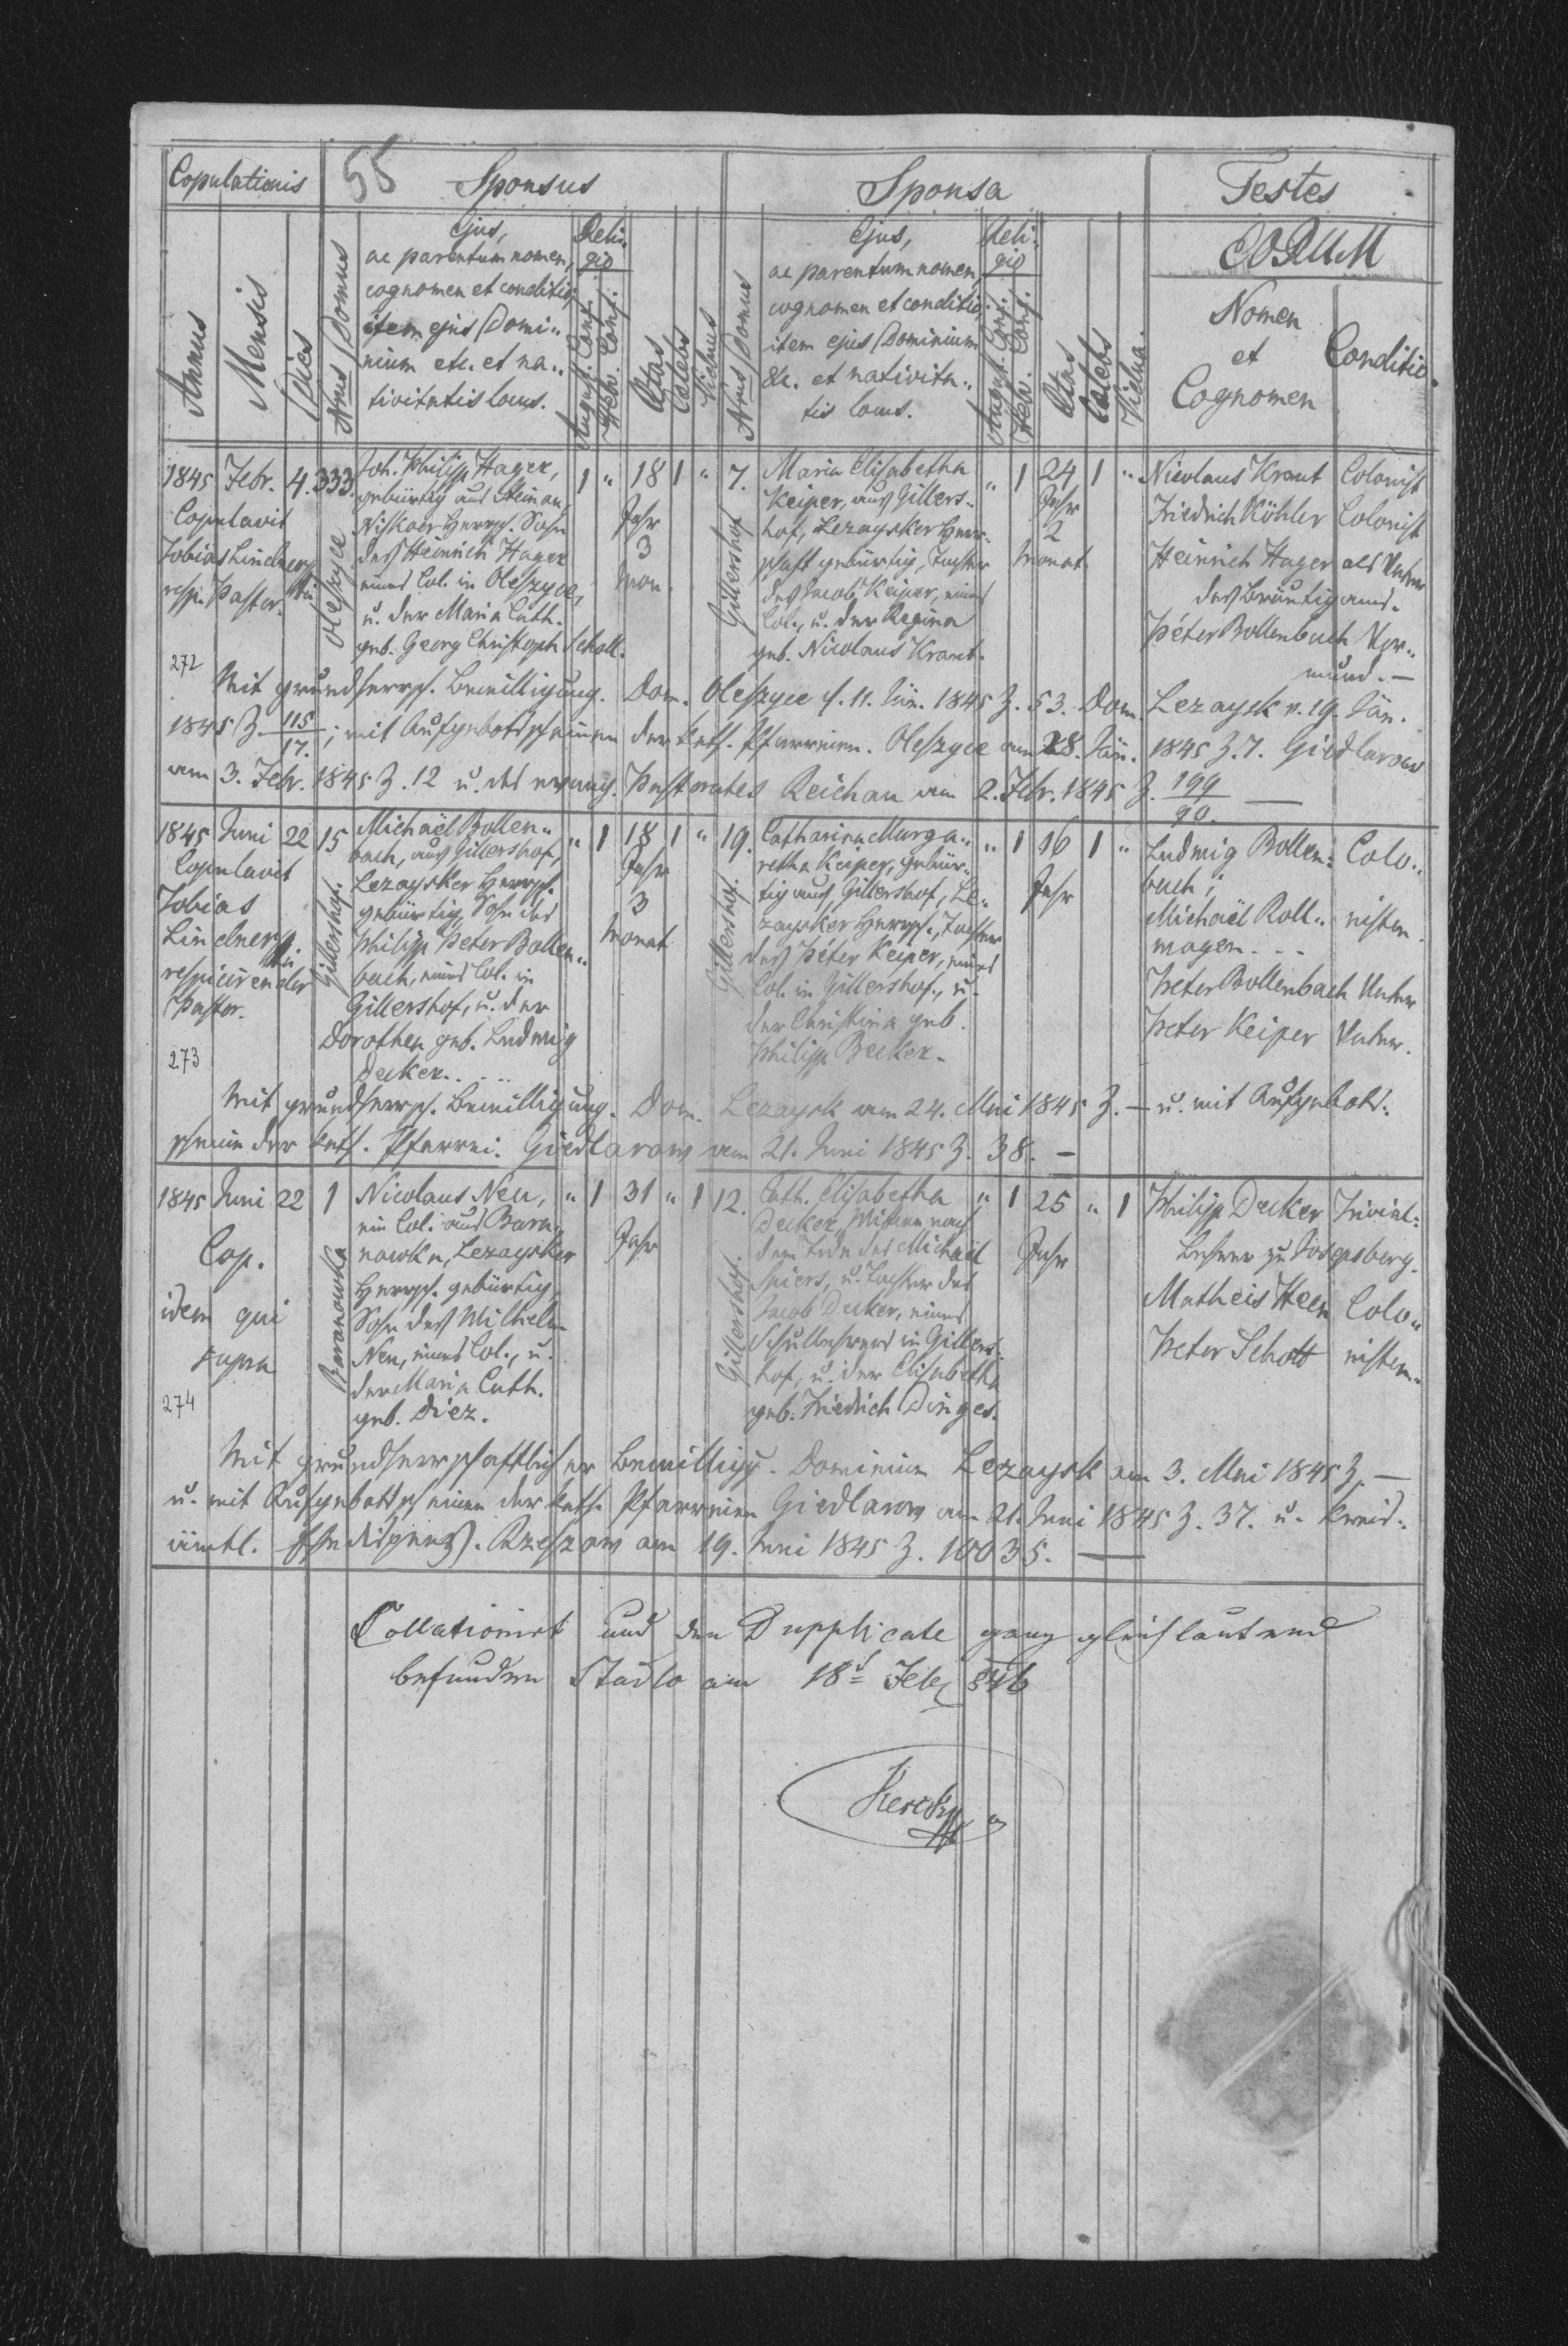 55
Copulationis
Sponsus
Sponsa
Testes
Annus
Mensis
Dies
Nrus Domus
Ejus,
ac parentum nomen,
cognomen et conditio,
item ejus Domi-
nium etc. et na-
tivitatis locus.
Reli-
gio
August. Conf.
Helv. Conf.
Aetas
Caelebs
Viduus
Nrus Domus
Ejus,
ac parentum nomen,
cognomen et conditio,
item ejus Dominium
&c. et nativita-
tis locus.
Reli-
gio
August. Conf.
Helv. Conf.
Aetas
Caelebs
Vidua
EORUM
Nomen
et
Cognomen
Conditio.
1845 Febr. 4.
Copulavit
Tobias Lindner
resp. Pastor.
272
333.
Oleszyce
Joh. Philipp Hager,
gebürtig aus Steinau,
Niskoer Herrsch. Sohn
des Heinrich Hager
eines Col. in Oleszyce,
u. der Maria Cath.
geb. Georg Christoph Scholl.
1 " 18 1 "
Jahr
3
Mon.
7.
Gillershof
Maria Elisabetha
Keiper, aus Gillers-
hof, Lezaysker Herr-
schaft gebürtig, Tochter
des Jacob Keiper, eines
Col., u. der Regina
geb. Nicolaus Kraut.
" 1 24 1 "
Jahr
2
Monat.
Nicolaus Kraut Colonist
Friedrich Köhler Colonist
Heinrich Hager als Vater
des Bräutigams.
Peter Bollenbach Vor-
mund. —
Mit grundherrsch. Bewilligung. Dom. Oleszyce d. 11. Jän. 1845 Z. 53. Dom. Lezaysk v. 19. Jän.
1845 Z. 115/17.; mit Aufgebotsscheinen der kath. Pfarreien. Oleszyce am 28. Jän. 1845 Z. 7. Giedlarow
am 3. Febr. 1845 Z. 12 u. des evang. Pastorates Reichau am 2. Febr. 1845 Z. 199/90. —
1845 Juni 22
Copulavit
Tobias
Lindner
respicirender
Pastor.
273
15
Gillershof.
Michaël Bollen-
bach, aus Gillershof,
Lezaysker Herrsch.
gebürtig, Sohn des
Philipp Peter Bollen-
bach, eines Col. in
Gillershof, u. der
Dorothea geb. Ludwig
Decker. . . . .
" 1 18 1 "
Jahr
3
Monat
19.
Gillershof.
Catharina Marga-
retha Keiper, gebür-
tig aus Gillershof, Le-
zaysker Herrsch., Tochter
des Peter Keiper, eines
Col. in Gillershof., u.
der Christina geb.
Philipp Becker.
" 1 16 1 "
Jahr
Ludwig Bollen- Colo-
bach;
Michaël Roll- nisten
wagen. . .
Peter Bollenbach Vater
Peter Keiper Vater.
Mit grundherrsch. Bewilligung. Dom. Lezaysk am 24. Mai 1845 Z. — u. mit Aufgebots-
scheine der kath. Pfarrei. Giedlarow am 21. Juni 1845 Z. 38. —
1845 Juni 22
Cop.
idem qui
supra
274
1
Baranowka
Nicolaus Neu,
ein Col. aus Bara-
nowka, Lezaysker
Herrsch. gebürtig,
Sohn des Wilhelm
Neu, eines Col., u.
der Maria Cath.
geb. Diez.
" 1 31 " 1
Jahr
12.
Gillershof.
Cath. Elisabetha
Decker, Witwe nach
dem Tode des Michaël
Spiers, u. Tochter des
Jacob Decker, eines
Schullehrers in Gillers-
hof, u. der Elisabetha
geb. Friedrich Dinges.
" 1 25 " 1
Jahr
Philipp Decker Trivial-
Lehrer zu Josepsberg.
Matheis Heen Colo-
Peter Schott nisten.
Mit grundherrschaftlicher Bewilligg. Dominium Lezaysk am 3. Mai 1845 Z. —
u. mit Aufgebotsscheinen der kath. Pfarreien Giedlarow am 21. Juni 1845 Z. 37. u. kreis-
ämtl. Ehedispens. Rzeszow am 19. Juni 1845 Z. 10035. —
Collationirt und den Dupplicate ganz gleichlautend
befunden Stadlo am 18t Feb 846